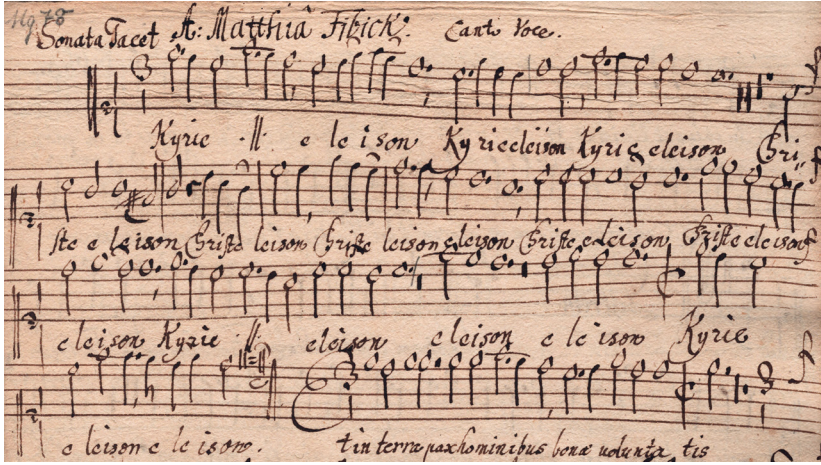 Sonata Tacet A: Matthia Fibick: Canto Voce.
Kyrie ·//· e le i son Kyrie eleison Kyrie eleison Chri-
ste e leison Christe leison Christe leison eleison Christe eleison Christe eleison
eleison Kyrie ·//· eleison eleison e le ison Kyrie
e leison e le ison. t in terra pax hominibus bonæ volunta tis